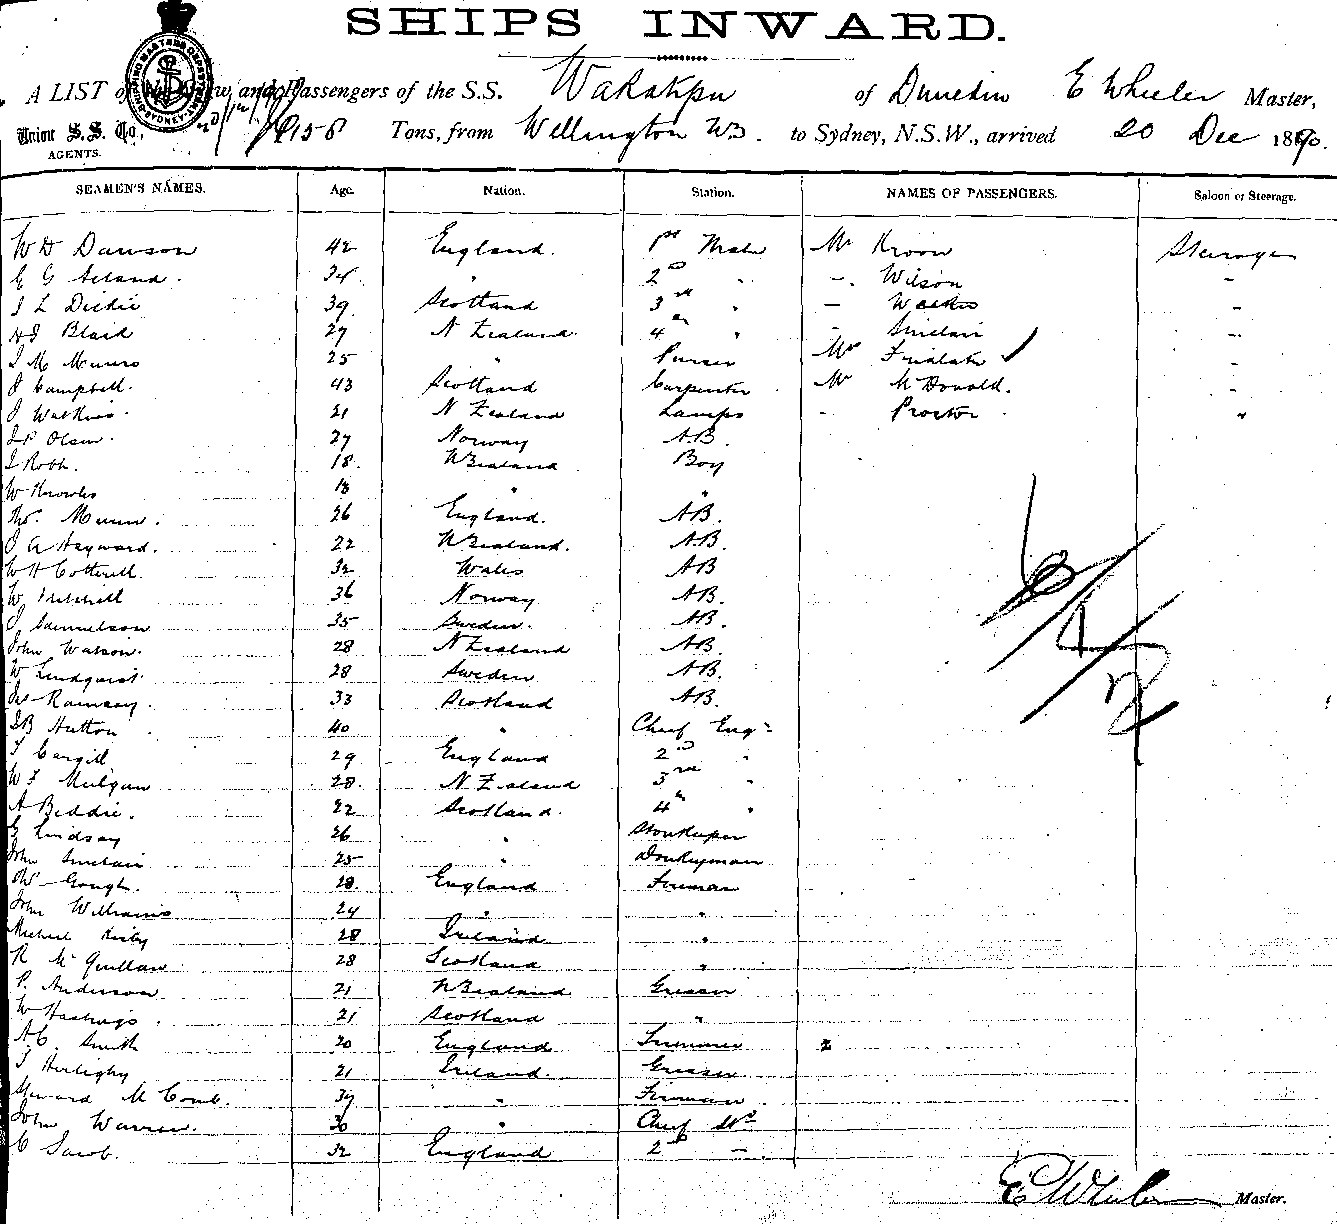 SHIPS INWARD.
A LIST of the Crew and Passengers of the S.S. Wakatipu of Dunedin E Wheeler Master,
Union S.S. Co., 1158 Tons, from Wellington to Sydney, N.S.W., arrived 20 Dec 1890.
AGENTS.
SEAMEN'S NAMES. Age. Nation. Station. NAMES OF PASSENGERS. Saloon or Steerage.
W H Dawson 42 England. 1st Mate Mr Kroon Steerage
E G Acland. 34 " 2nd " - Wilson "
J L Dickie 39 Scotland 3rd " - "
Blair 27 N Zealand 4th " - Sinclair "
J M Munro 25 " Purser Mr "
J Campbell. 43 Scotland Carpenter Mr McDonald. "
J Watkins. 21 N Zealand Lamps - Proctor "
J P Olsen. 27 Norway A.B.
J Robb. 18. N Zealand Boy
W Knowles 18 " "
26 England. A.B.
J A Hayward. 22 N Zealand. A.B.
W H Cotterell 32 Wales AB
W Mitchell 36 Norway A.B.
J Samuelson 35 Sweden. A.B.
John Watson. 28 N Zealand A.B.
W Lindquist 28 Sweden A.B.
Jas Ramsay. 33 Scotland A.B.
J B Hutton 40 " Chief Engr
T Cargill 29 England 2nd "
W F Mulgan 28. N Zealand 3rd "
A Beddie. 22 Scotland. 4th "
G Lindsay 26 " Storekeeper
John Sinclair 25 " Donkeyman
Gough. 28. England Fireman
John Williams 24 " "
Michael Kirby 28 Ireland "
R McQuillan 28 Scotland "
P. Anderson 21 N Zealand Greaser
W Hastings. 21 Scotland "
A C. Smith 20 England Trimmer
J Herlighy 21 Ireland. Greaser
McComb. 39 " Fireman
John Warren. 30 " Chief Std
C Jacob. 32 England 2nd -
E Wheeler Master.